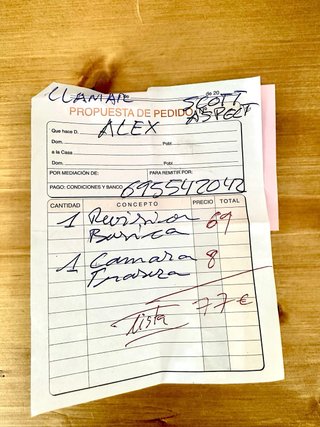 CLAMAR
de 20
SCOTT
PROPUESTA DE PEDIDO
ASPECT
Que hace D. ALEX
Dom. Pobl.
a la Casa
Dom. Pobl.
POR MEDIACIÓN DE: PARA REMITIR POR:
PAGO: CONDICIONES Y BANCO 695542042
CANTIDAD CONCEPTO PRECIO TOTAL
1 Revision 69
Basica
1 Camara 8
Trasera
Lista 77€